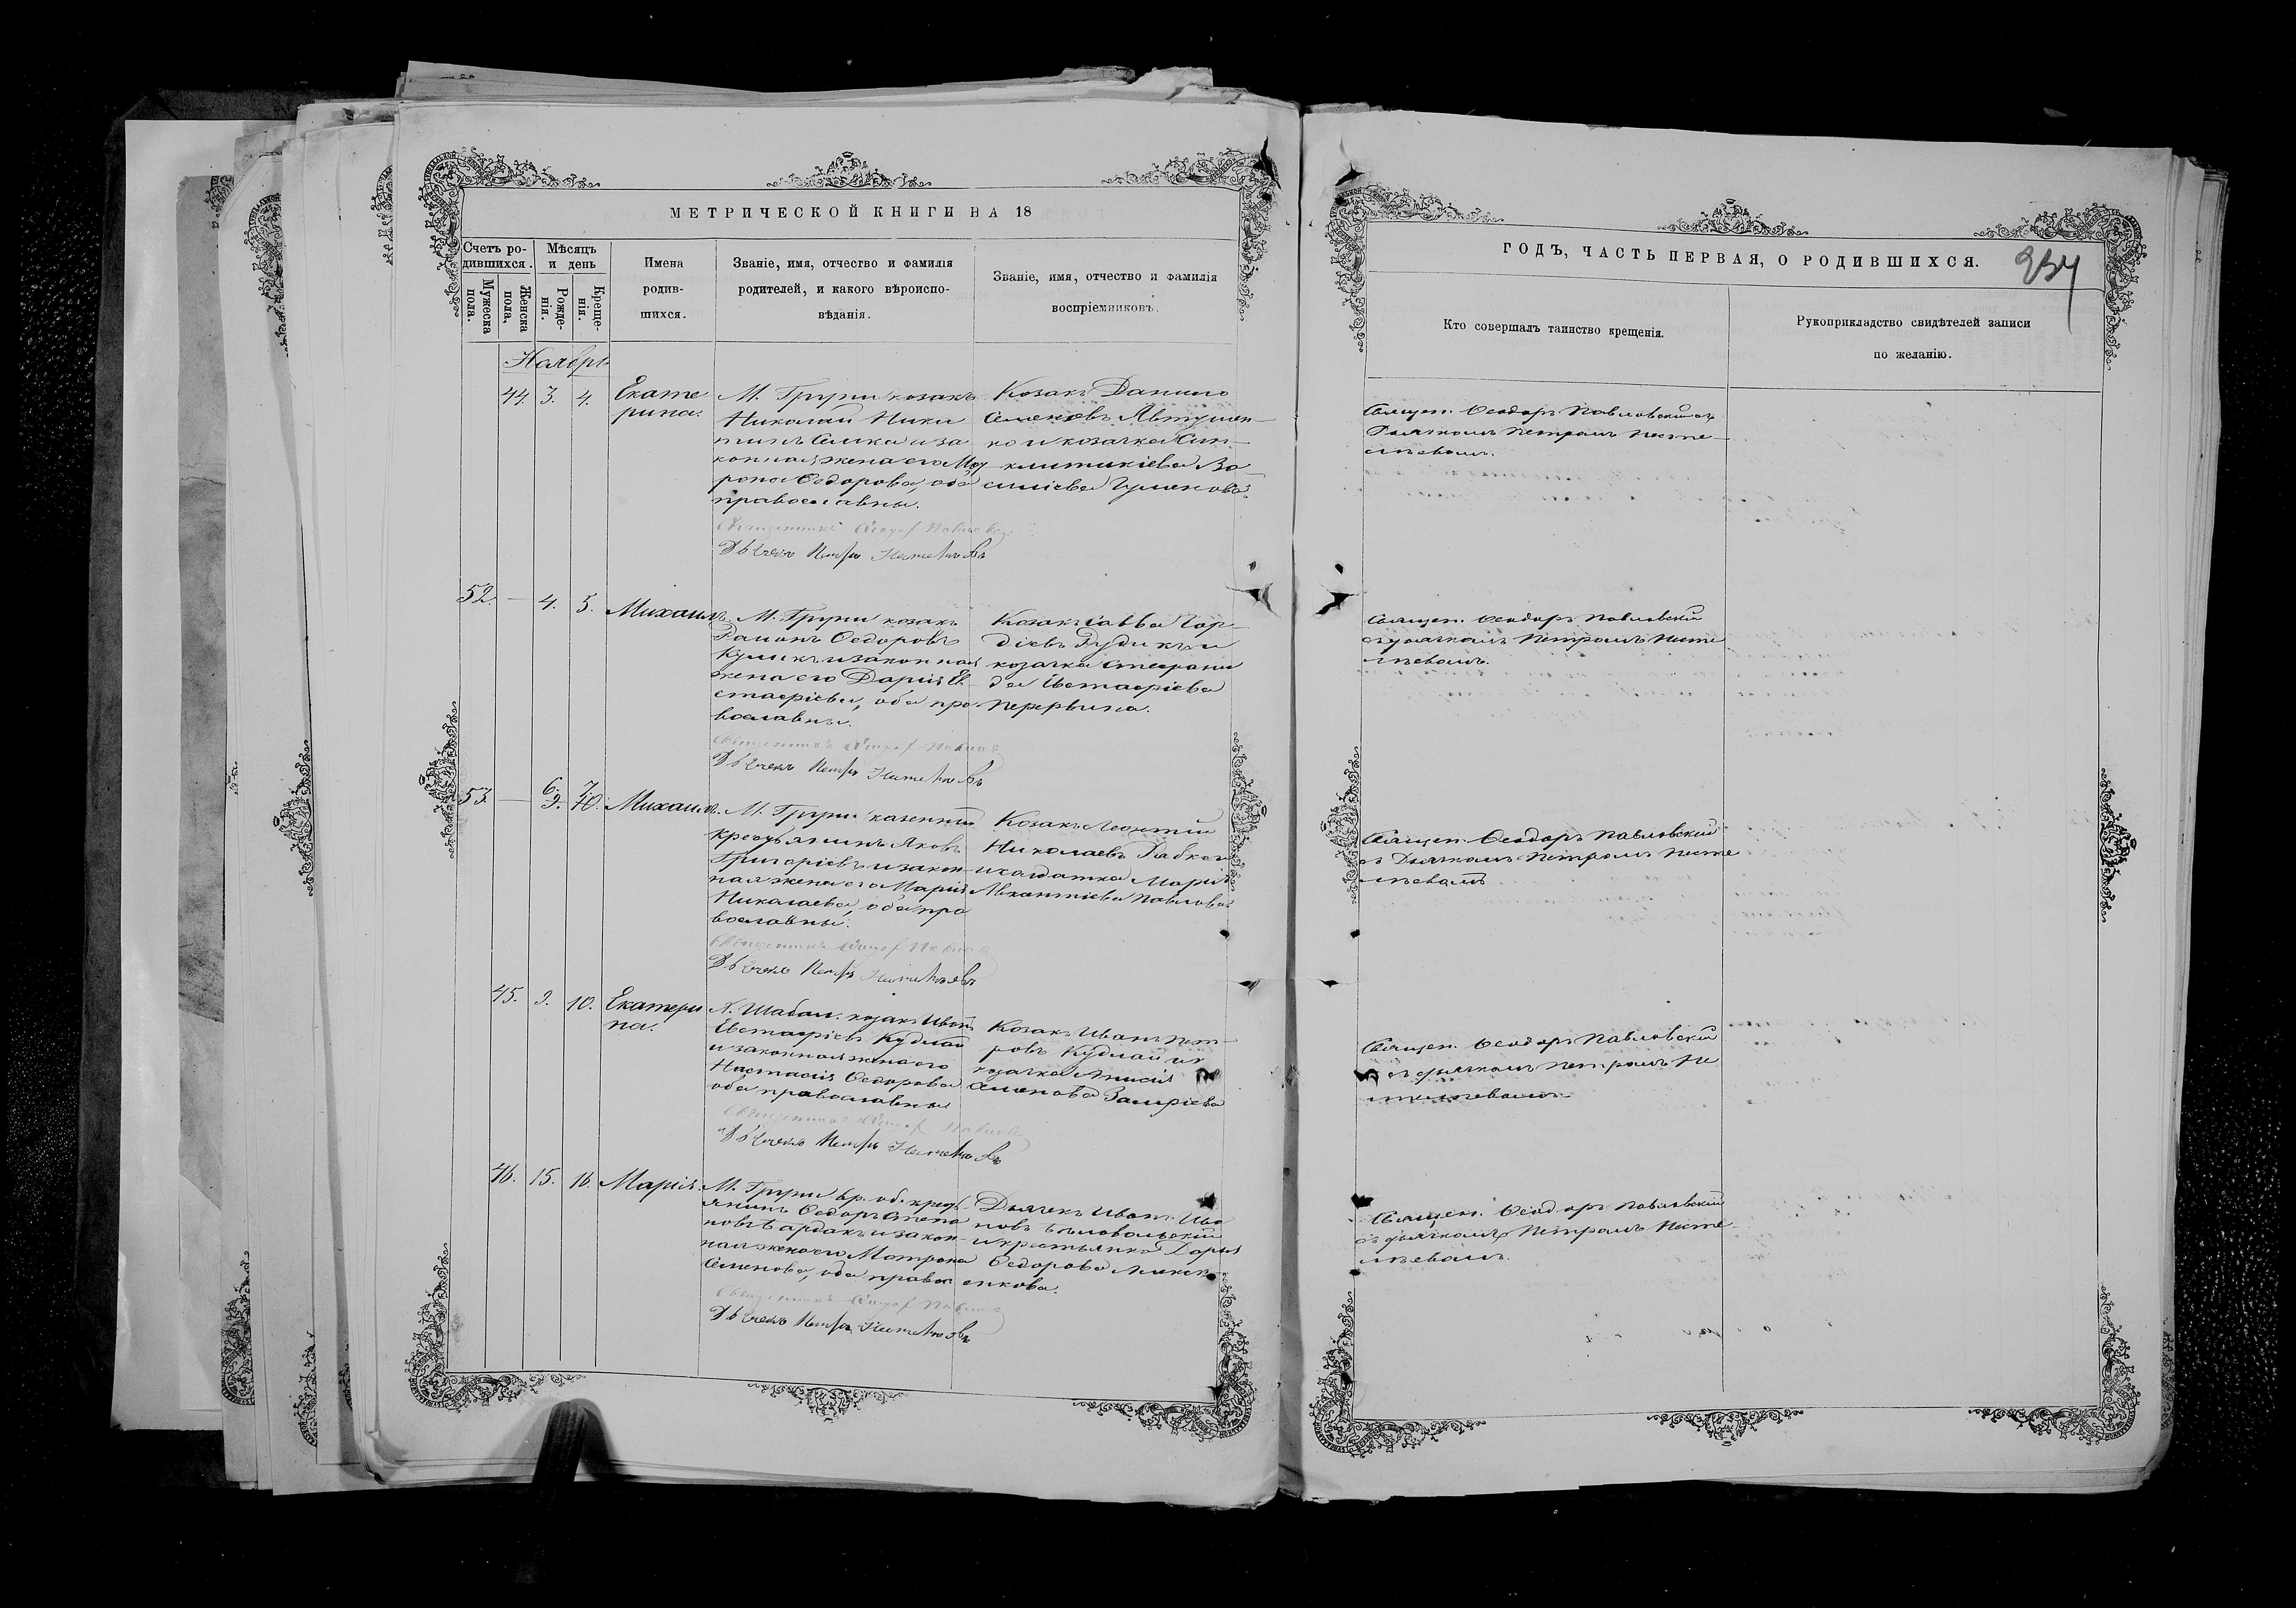 МЕТРИЧЕСКОЙ КНИГИ НА 18
Счетъ ро-
дившихся.
Мужеска
пола.
Женска
пола.
Мѣсяцъ
и день
Рожде-
нія.
Креще-
нія.
Имена
родив-
шихся.
Званіе, имя, отчество и фамилія
родителей, и какого вѣроиспо-
вѣданія.
Званіе, имя, отчество и фамилія
воспріемниковъ.
Ноябрь
44. 3. 4. Екате
рина.
М. Груни козакъ
Николай Ники
тинъ Симка и за
конная жена его Мот
рона Ѳедорова, оба
православны.
Священникъ Ѳеодоръ Павловскій
Дьячекъ Петръ
Козакъ Данило
Семеновъ Явтушен
ко и козачка Син-
клитикіева Ва
силіева
52. — 4. 5. Михаилъ.
М. Груни козакъ
Романъ Ѳедоровъ
Куликъ и законная
жена его Дарія Ев
стафіева, оба пра
вославны.
Священникъ Ѳеодоръ
Дьячекъ Петръ
Козакъ Савва Гор
діевъ Рудикъ и
козачка Стефани
да Евстафіева
Перервина.
53. — 6. 7.
9. 10. Михаилъ.
М. Груни казенный
крестьянинъ Яковъ
Григоріевъ и закон
ная жена его Марія
Николаева, оба пра
вославны.
Священникъ Ѳеодоръ
Дьячекъ Петръ
Козакъ Леонтій
Николаевъ Рабков
и солдатка Марія
Леонтіева Павлова
45. 9. 10. Екатери
на.
Х. Шабал. козакъ Иванъ
Евстафіевъ Кудлай
и законная жена его
Настасія Ѳедорова
оба православны
Священникъ Ѳеодоръ
Дьячекъ Петръ
Козакъ Иванъ Пет-
ровъ Кудлай и
козачка Анисія
Семенова
46. 15. 16. Марія.
М. Груни вр. об. крест
янинъ Ѳедоръ Степа
новъ и закон
ная жена его Матрона
Семенова, оба правос
Священникъ Ѳеодоръ
Дьячекъ Петръ
Дьячекъ Иванъ Ива
новъ
и крестьянка Дарія
Ѳедорова
енкова.
ГОДЪ, ЧАСТЬ ПЕРВАЯ, О РОДИВШИХСЯ.
Кто совершалъ таинство крещенія.
Рукоприкладство свидѣтелей записи
по желанію.
Священ. Ѳеодоръ Павловскій съ
Дьячкомъ Петромъ Несте
лѣевымъ.
Священ. Ѳеодоръ Павловскій
съ дьячкомъ Петромъ Несте
лѣевымъ.
Священ. Ѳеодоръ Павловскій
съ Дьячкомъ Петромъ Несте
лѣевымъ
Священ. Ѳеодоръ Павловскій
съ дьячкомъ Петромъ Не
стелѣевымъ.
Священ. Ѳеодоръ Павловскій
съ дьячкомъ Петромъ Несте
лѣевымъ.